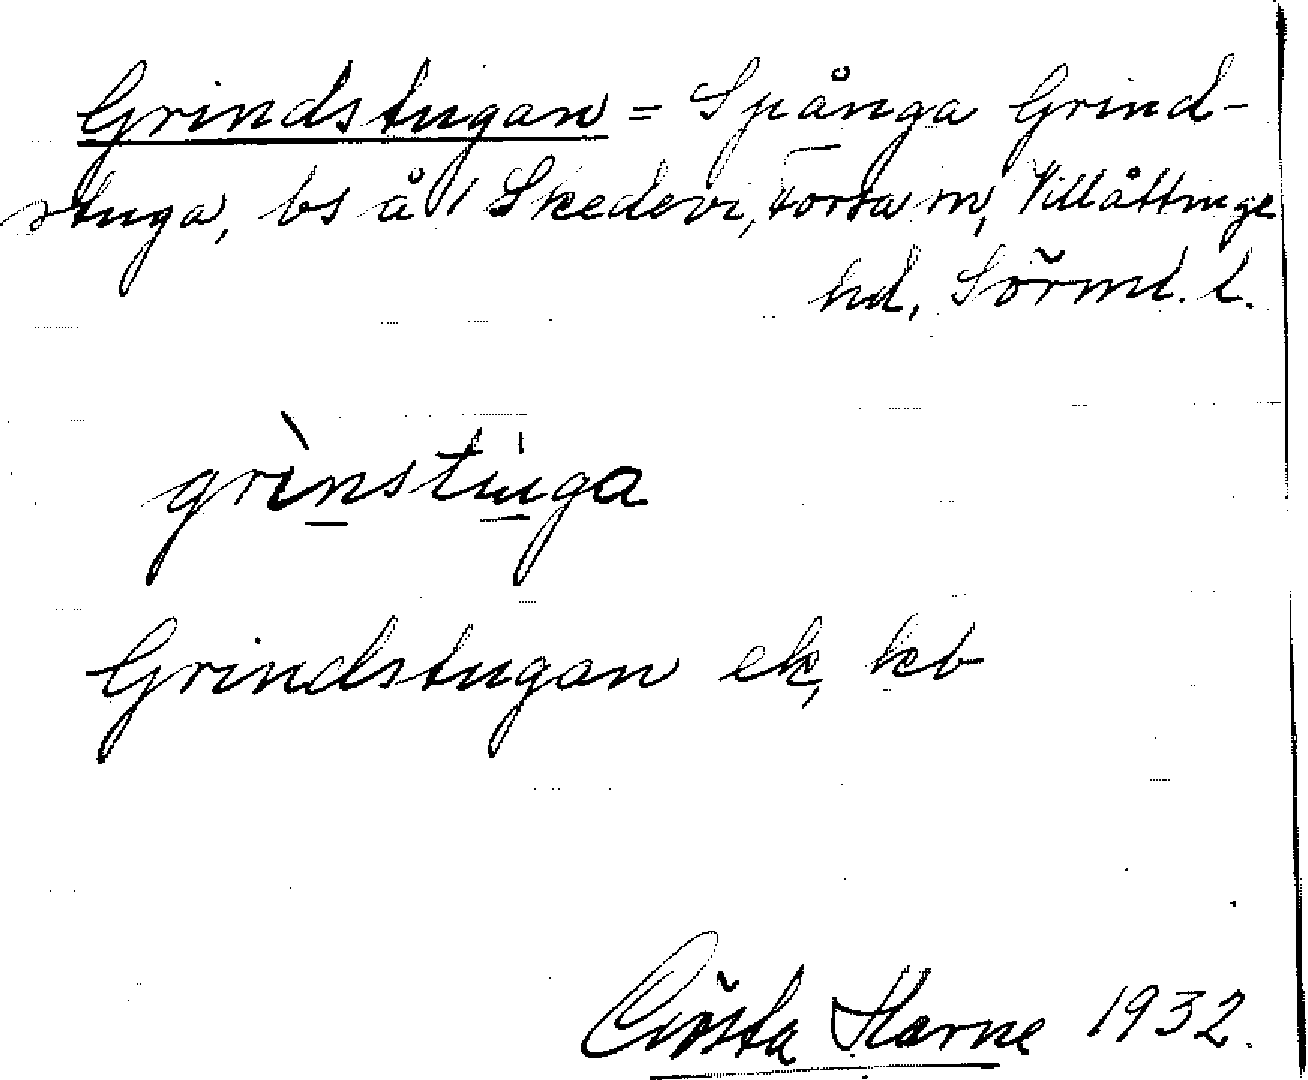 Grindstugan = Spånga Grind-
stuga, bs å Skedevi, Forssa sn, Villåttinge
hd, Sörml. l.
grìnstu̱ga
Grindstugan ek, kb
Gösta Harne 1932.